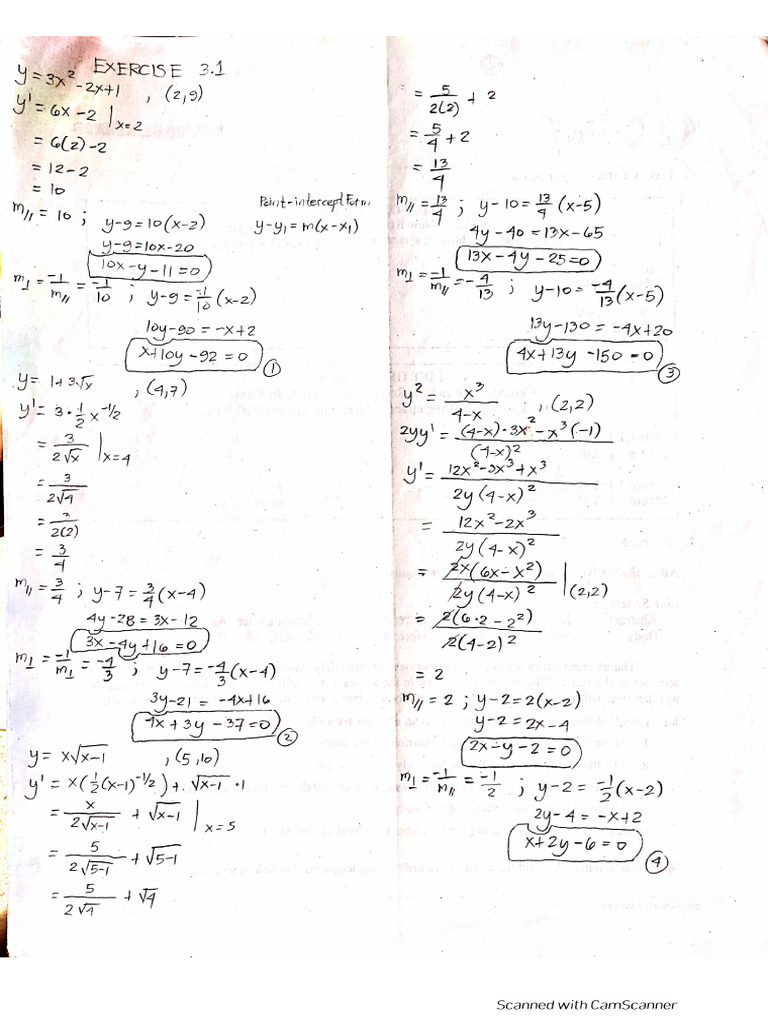 EXERCISE 3.1
y = 3x² - 2x + 1 , (2,9)
y' = 6x - 2 |x=2
= 6(2) - 2
= 12 - 2
= 10
Point-intercept Form
m// = 10 ; y-9 = 10(x-2) y-y₁ = m(x-x₁)
y-9 = 10x-20
10x - y - 11 = 0
m⊥ = -1/m// = -1/10 ; y-9 = -1/10 (x-2)
10y-90 = -x+2
x + 10y - 92 = 0
①
y = 1 + 3√x , (4,7)
y' = 3 · 1/2 x^-1/2
= 3/(2√x) |x=4
= 3/(2√4)
= 3/2(2)
= 3/4
m// = 3/4 ; y-7 = 3/4 (x-4)
4y-28 = 3x-12
3x - 4y + 16 = 0
m⊥ = -1/m⊥ = -4/3 ; y-7 = -4/3 (x-4)
3y-21 = -4x+16
4x + 3y - 37 = 0
②
y = x√x-1 , (5,10)
y' = x(1/2 (x-1)^-1/2) + √x-1 · 1
= x/(2√x-1) + √x-1 |x=5
= 5/(2√5-1) + √5-1
= 5/(2√4) + √4
= 5/2(2) + 2
= 5/4 + 2
= 13/4
m// = 13/4 ; y-10 = 13/4 (x-5)
4y-40 = 13x-65
13x - 4y - 25 = 0
m⊥ = -1/m// = -4/13 ; y-10 = -4/13 (x-5)
13y-130 = -4x+20
4x + 13y - 150 = 0
③
y² = x³/(4-x) , (2,2)
2yy' = ((4-x)·3x² - x³(-1))/(4-x)²
y' = (12x² - 3x³ + x³)/(2y(4-x)²)
= (12x² - 2x³)/(2y(4-x)²)
= 2x(6x-x²)/(2y(4-x)²) |(2,2)
= 2(6·2-2²)/(2(4-2)²)
= 2
m// = 2 ; y-2 = 2(x-2)
y-2 = 2x-4
2x - y - 2 = 0
m⊥ = -1/m// = -1/2 ; y-2 = -1/2 (x-2)
2y-4 = -x+2
x + 2y - 6 = 0
④
Scanned with CamScanner